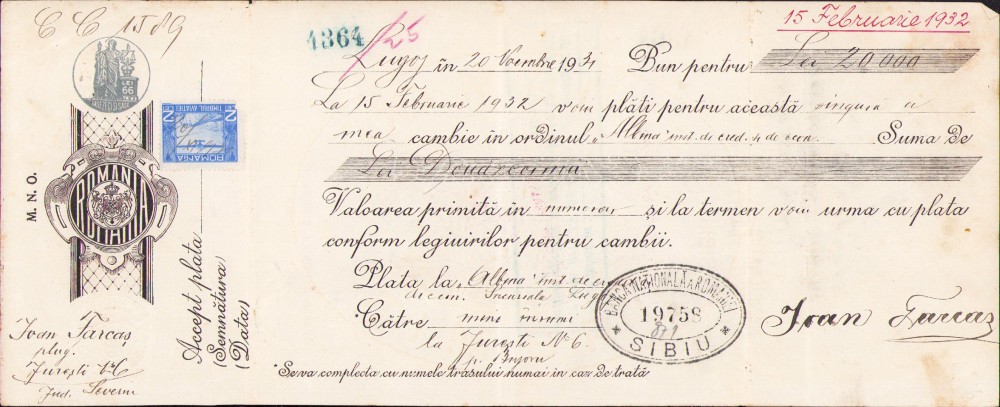 C C 1589
1364 /25
15 Februarie 1932
LEI 66
M. N. O.
ROMANIA
ROMANIA
2 TIMBRUL AVIATIEI 2
ROMANIA
Lugoj în 20 Noembrie 1931 Bun pentru Lei 20000
La 15 Februarie 1932 voiu plăti pentru această singura a
mea cambie în ordinul „Albina" inst. de cred. și de ec. Suma de
Lei Douăzecimii
Valoarea primită în numerar și la termen voiu urma cu plata
conform legiuirilor pentru cambii.
Plata la „Albina" inst. de
de econ. Sucursala Lugoj
Către mine însumi
la Jurești No 6.
*Se va complecta cu numele trasului numai în caz de trată
Accept plata
(Semnătura)
(Data)
BANCA NAȚIONALĂ A ROMÂNIEI
19758
* SIBIU *
Ioan Farcas
Ioan Farcas
plug.
Jurești No 6
Jud. Severin